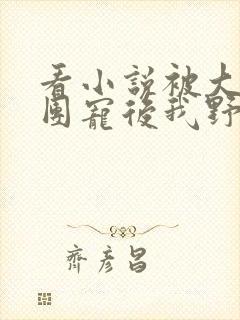 看小説被大
團寵後我野
齊彦昌